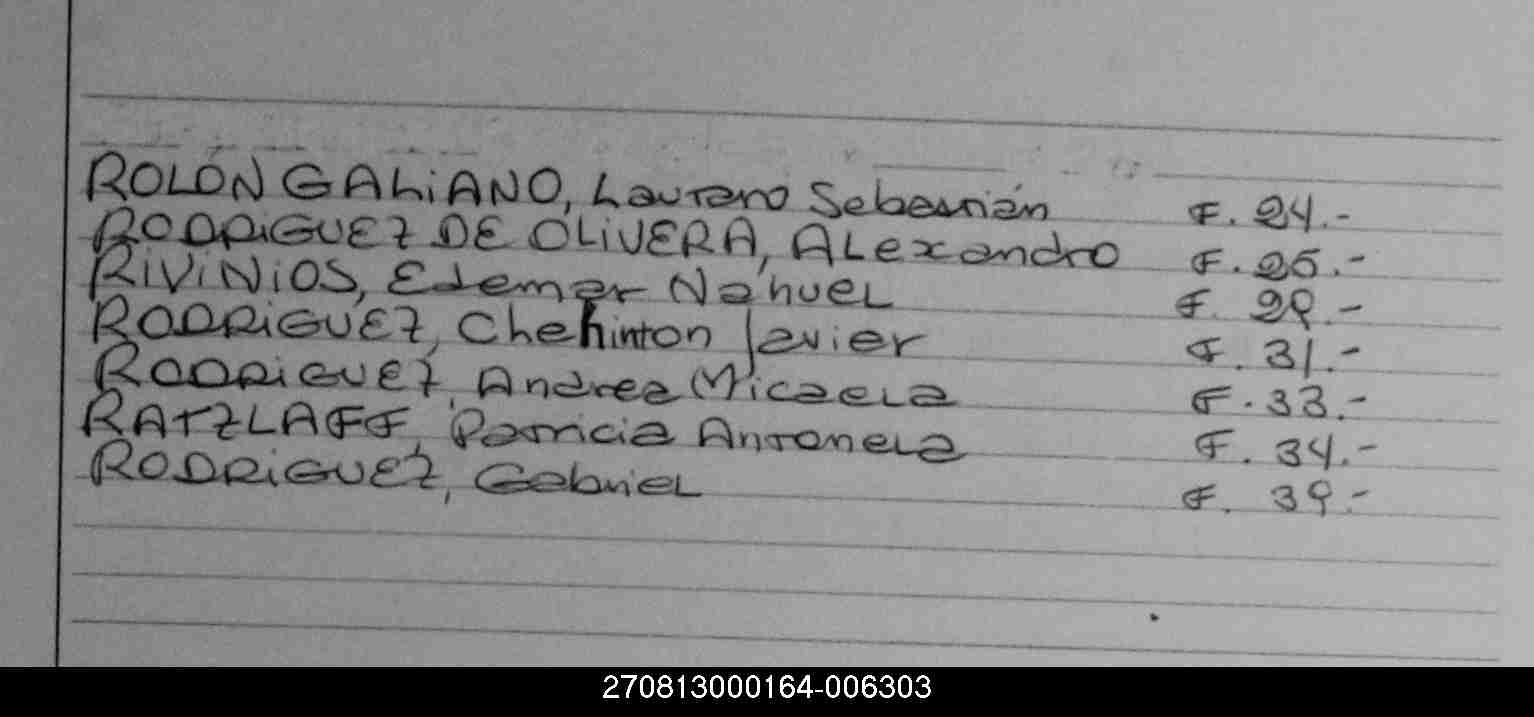 ROLÓN GALIANO, Lautaro Sebastián F. 24.-
RODRIGUEZ DE OLIVERA, ALexandro F. 26.-
RIVINIOS, Edemar NahueL F. 29.-
RODRIGUEZ, Chehinton Javier F. 31.-
RODRIGUEZ, Andrea Micaela F. 33.-
RATZLAFF, Patricia Antonela F. 34.-
RODRIGUEZ, GabrieL F. 39.-
270813000164-006303